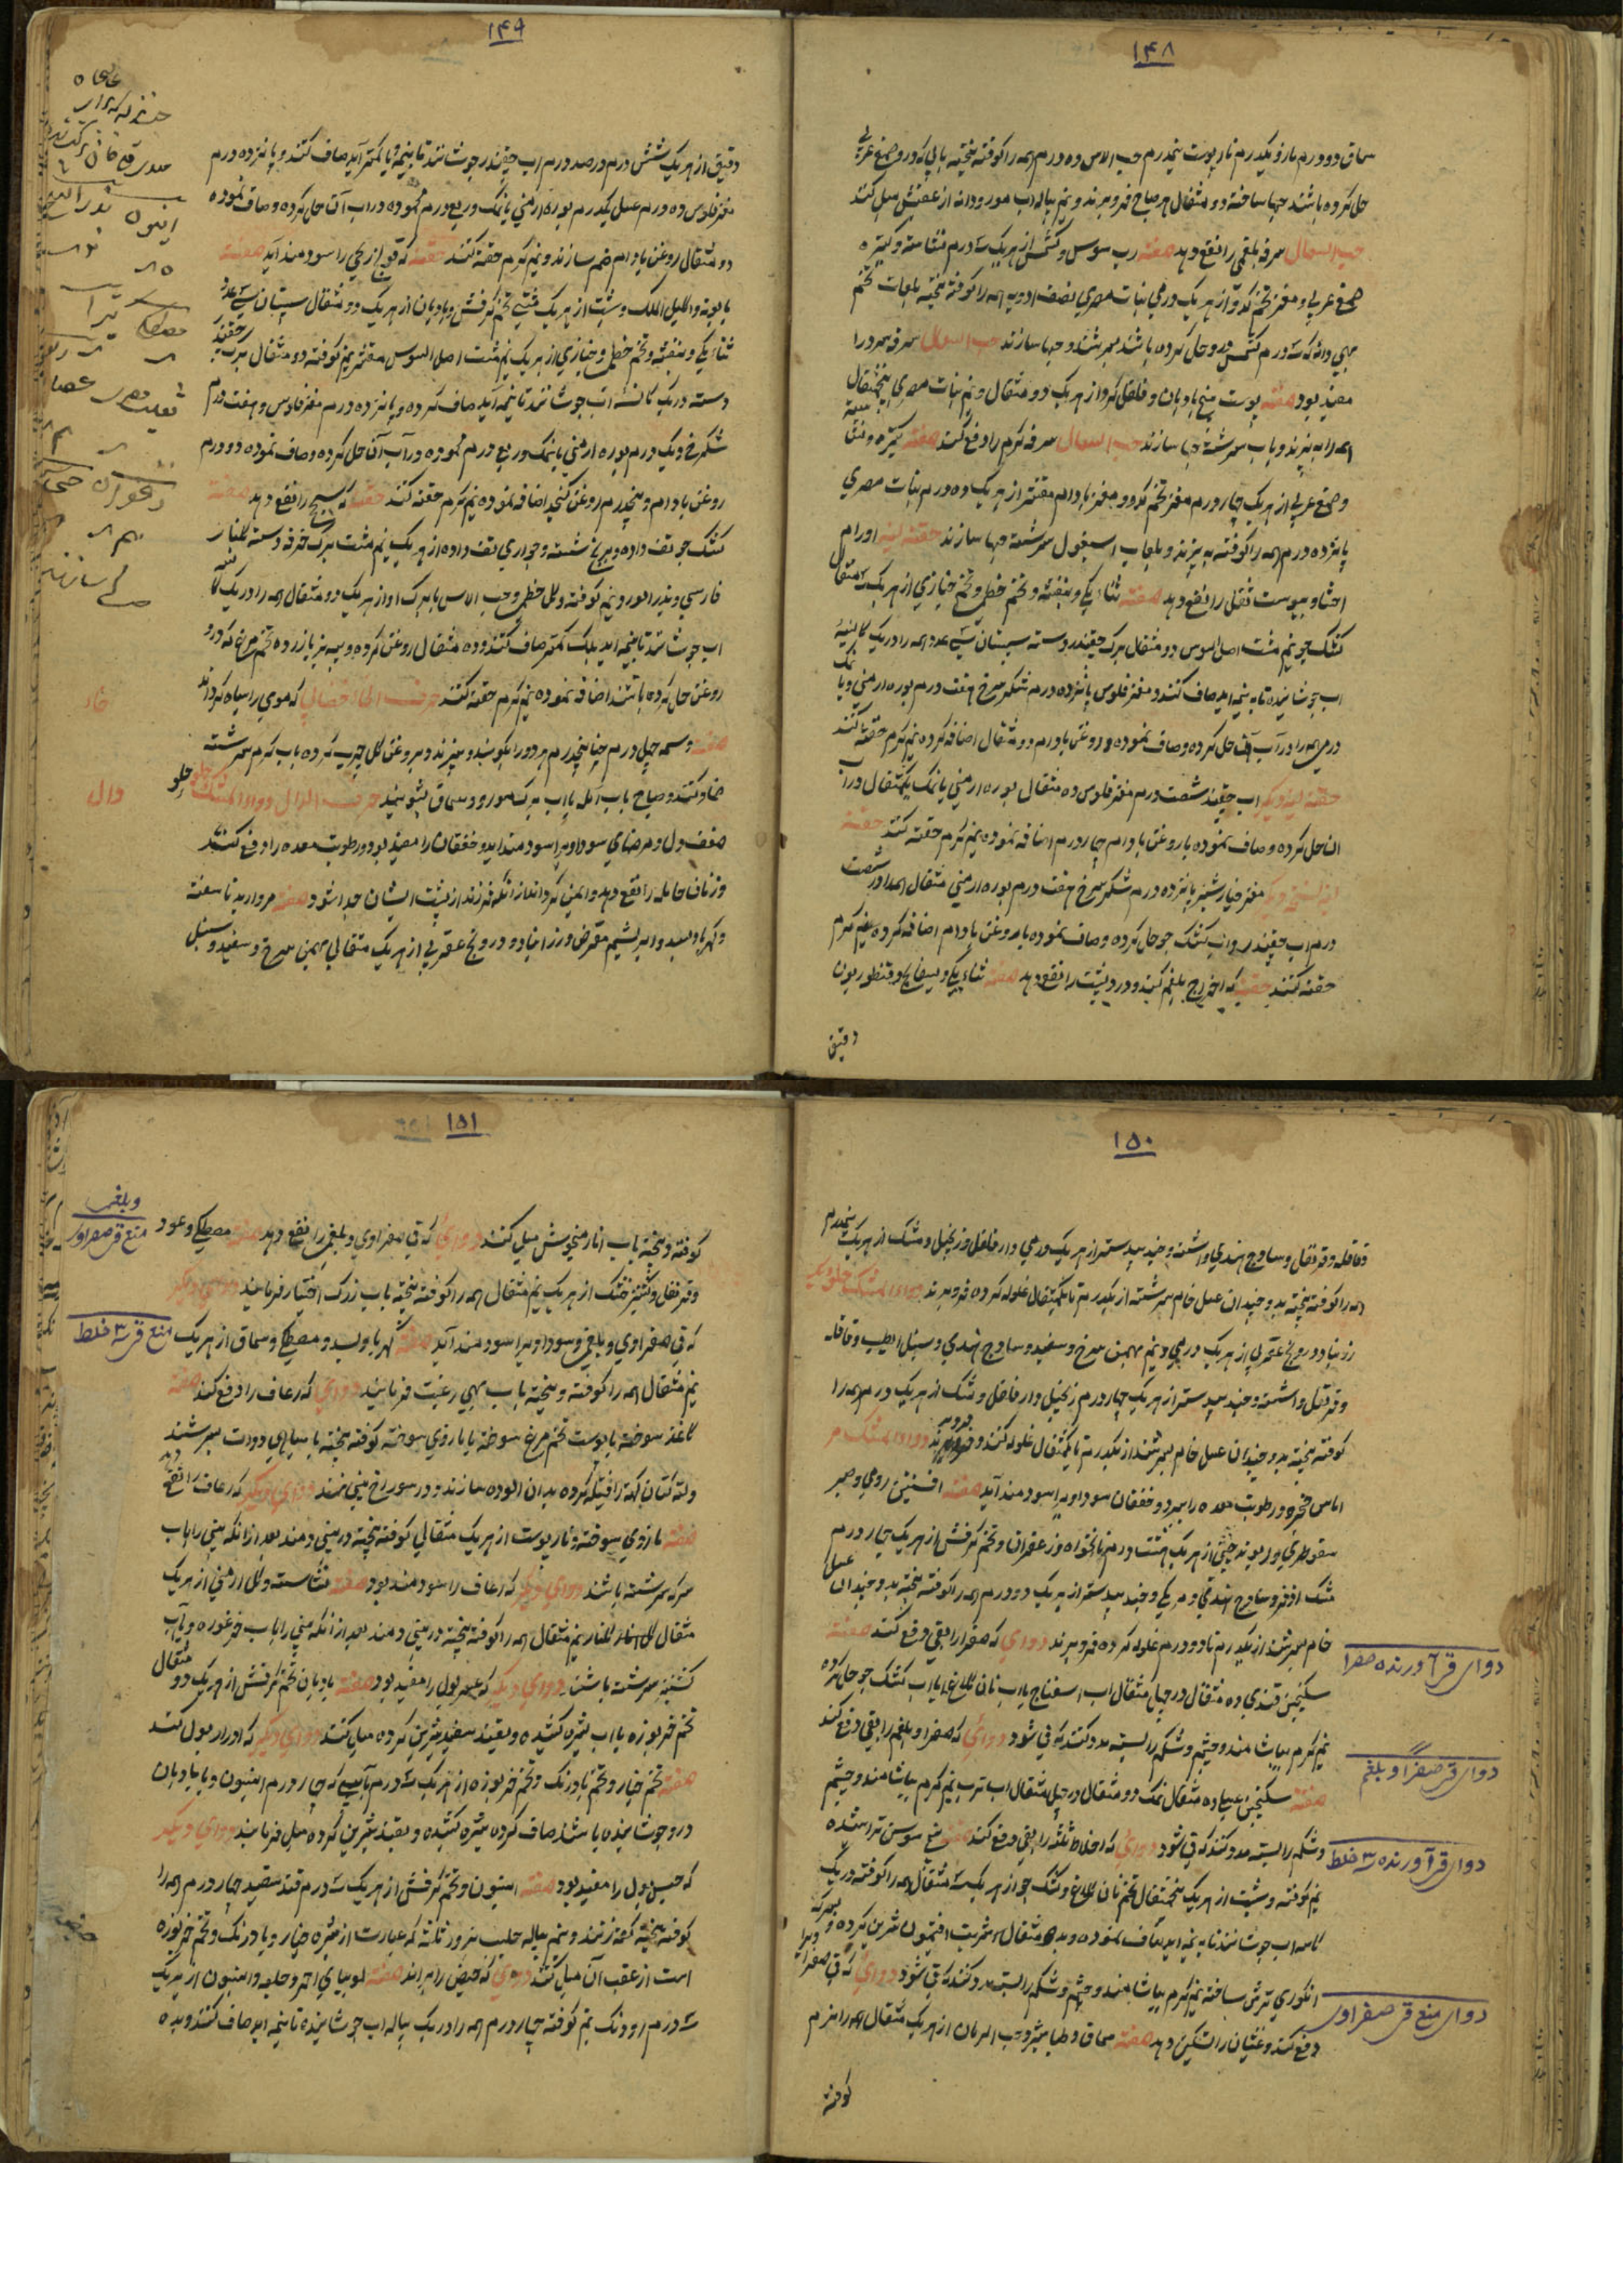 ۱۴۸
سماق دو درم مازو یکدرم نار پوست پنجدرم حب الاس ده درم همه را کوفته بیخته بابی که درو صمغ عربی
حل کرده باشند حبها ساخته دو مثقال هر صباح فرو برند و نیم پیاله اب مورد دانه از عقبش میل کنند
حب السعال سرفه بلغمی را نفع دهد صفته رب سوس و کشمش از هریک سه درم نشاسته و کتیره
صمغ عربی و مغز تخم کدو از هریک درمی نبات مصری نصف ادویه همه را کوفته بیخته بلعاب تخم
بهی دانه که سه درم کشمش درو حل کرده باشند بسرشند و حبها سازند حب السعال سرفه سرد را
مفید بود صفته پوست بیخ بادیان و فلفل گرد از هریک دو مثقال و نیم نبات مصری پنج مثقال
همه را به پزند و باب سرشته حبها سازند حب السعال سرفه گرم را دفع کند صفته کتیره و نشاسته
و صمغ عربی از هریک چهار درم مغز تخم کدو و مغز بادام مقشر از هریک ده درم نبات مصری
پانزده درم همه را کوفته به بیزند و بلعاب اسبغول سرشته حبها سازند حقنه لینه اورام
احشا و یبوست ثفل را نفع دهد صفته ثناء یکی و بنفشه و تخم خطمی و تخم خبازی از هریک سه مثقال
کشک جو نیم مشت اصل السوس دو مثقال برک چقندر دسته سپستان سی عدد همه را در یک کاسه
اب جوشانیده تا به نیمه اید صاف کنند و مغز فلوس پانزده درم شکر سرخ هفت درم بوره ارمنی و یا نمک
درمی همه را در آب آن حل کرده و صاف نموده و روغن بادام دو مثقال اضافه کرده نیم گرم حقنه کنند
حقنه لینه دیگر اب چقندر شصت درم مغز فلوس ده مثقال بوره ارمنی یا نمک یکمثقال در آب
ان حل کرده و صاف نموده با روغن بادام چهار درم اضافه نموده نیم گرم حقنه کنند حقنه
لینه نسخه دیگر مغز خیار شنبر پانزده درم شکر سرخ هفت درم بوره ارمنی مثقال همه را در شصت
درم اب چقندر و اب کشک جو حل کرده و صاف نموده با روغن بادام اضافه کرده نیم گرم
حقنه کنند حقنه که اخراج بلغم کند و درد پشت را نفع دهد صفته ثناء یکی و بسفایج و قنطوریون
دقیق
۱۴۹
دقیق از هریک شش درم در صد درم اب چقندر جوشانند تا بنیمه و یا کمتر آید صاف کنند و پانزده درم
مغز فلوس ده درم عسل یکدرم بوره ارمنی یا نمک و ربع درم محموده در اب آن حل کرده و صاف نموده
دو مثقال روغن بادام ضم سازند و نیم گرم حقنه کنند حقنه که قولنج ریحی را سودمند آید صفته
بابونه و اکلیل الملک و شبت از هریک قبضی تخم کرفش و بادیان از هریک دو مثقال سپستان سی عدد
ثناء یکی و بنفشه و تخم خطمی و خبازی از هریک نیم مشت اصل السوس مقشر نیم کوفته دو مثقال برک چقندر
دسته در یک کاسه آب جوشانند تا بنیمه آید صاف کرده و پانزده درم مغز فلوس و هفت درم
شکر سرخ و یک درم بوره ارمنی یا نمک و ربع درم محموده در آب آن حل کرده و صاف نموده دو درم
روغن بادام و پنجدرم روغن کنجید اضافه نموده نیم گرم حقنه کنند حقنه که سحج را نفع دهد صفته
کشک جو تفت داده و برنج شسته و جواری تفت داده از هریک نیم مشت برک خرفه دسته گلنار
فارسی و بذر الورد نیم کوفته و گل خطمی و حب الاس یا برک او از هریک دو مثقال همه را در یک کاسه
اب جوشانند تا بنیمه اید بلک کمتر صاف کنند و ده مثقال روغن گرده و پیه بز با زرده تخم مرغ که درو
روغن حل کرده باشند اضافه نموده نیم گرم حقنه کنند حرف الخا خضابی که موی را سیاه گرداند
صفته وسمه چهل درم حنا پنجدرم هر دو را بکوبند و بیزند و بروغن گل چرب کرده باب گرم سرشته
ضماد کنند و صباح باب آمله یا اب برک مورد و سماق بشویند حرف الدال دواء المشک حلو
ضعف دل و مرضهای سوداویرا سودمند اید و خفقان را مفید بود و رطوبت معده را دفع کند
و زنان حامله را نفع دهد و ایمن گرداند از آنکه فرزند از پشت ایشان جدا شود صفته مروارید ناسفته
و کهربا و بسد و ابریشم مقرض و زرنباد و درونج عقربی از هریک مثقالی بهمن سرخ و سفید و سنبل
خاء
دال
حلو
۱۵۰
و قاقله و قرنفل و ساذج هندی و اشنه و جند بیدستر از هریک درمی دار فلفل و زنجبیل و مشک از هریک نیمدرم
همه را کوفته بیخته بدو چندان عسل خام سرشته از یکدرم تا یکمثقال غلوله کرده فرو برند دواء المشک حلو دیگر
زرنباد و درونج عقربی از هریک درمی و نیم بهمن سرخ و سفید و ساذج هندی و سنبل الطیب و قاقله
و قرنفل و اشنه و جند بیدستر از هریک چهار درم زنجبیل و دار فلفل و مشک از هریک درم همه را
کوفته بیخته بدو چندان عسل خام بسرشند از یکدرم تا یکمثقال غلوله کنند و فرو برند دواء المشک مر
اماس حنجره و رطوبت معده را ببرد و خفقان سوداویرا سودمند آید صفته افسنتین رومی و صبر
سقوطری و ریوند چینی از هریک هشت درم نانخواه و زعفران و تخم کرفش از هریک چهار درم
مشک اذفر و ساذج هندی و مر مکی و جند بیدستر از هریک دو درم همه را کوفته بیخته بدو چندان عسل
خام بسرشند از یکدرم تا دو درم غلوله کرده فرو برند دوای که صفرا را بقی دفع کند صفته
سکنجبین قندی ده مثقال در چهل مثقال اب اسفناج یا اب نان کلاغ یا اب کشک جو حل کرده
نیم گرم بیاشامند و چشم و شکم را بسته مدد کنند که قی شود دوائی که صفرا و بلغم را بقی دفع کند
صفته سکنجبین عسلی ده مثقال نمک دو مثقال در چهل مثقال اب ترب نیم گرم بیاشامند و چشم
و شکم را بسته مدد کنند که قی شود دوائی که اخلاط ثلثه را بقی دفع کند صفته بیخ سوسن تراشیده
نیم کوفته و شبت از هریک پنجمثقال تخم نان کلاغ و کشک جو از هریک سه مثقال همه را کوفته در یک
کاسه اب جوشانند تا به نیمه اید صاف نموده و بده مثقال شربت افتیمون شیرین کرده و بسرکه
انگوری ترش ساخته نیم گرم بیاشامند و چشم و شکم را بسته مدد کنند که قی شود دوائی که قی صفراویرا
دفع کند و غثیان را تسکین دهد صفته سماق و طباشیر و حب الرمان از هریک مثقال همه را نرم
کوفته
دوای قی آورنده صفرا
دوای قی صفرا و بلغم
دوای قی آورنده سه خلط
دوای منع قی صفراوی
۱۵۱
کوفته و بیخته باب انار میخوش میل کنند دوای که قی صفراوی و بلغمی را نفع دهد صفته مصطکی و عود
و قرنفل و کشنیز خشک از هریک نیم مثقال همه را کوفته بیخته باب زرک اختیار فرمایند دوای دیگر
که قی صفراوی و بلغمی و سوداویرا سودمند آید صفته کهربا و بسد و مصطکی و سماق از هریک
نیم مثقال همه را کوفته و بیخته باب بهی رغبت فرمایند دوای که رعاف را دفع کند صفته
کاغذ سوخته یا پوست تخم مرغ سوخته یا مازوی سوخته کوفته بیخته با سیاهی دوات بسرشند
و لته کتان کهنه را فتیله کرده بدان الوده سازند و در سوراخ بینی نهند دوای دیگر که رعاف را نفع دهد
صفته مازوی سوخته و نار پوست از هریک مثقالی کوفته بیخته در بینی دمند بعد از آنکه بینی را باب
سرکه سرشته باشند دوای دیگر که رعاف را سودمند بود صفته نشاسته و گل ارمنی از هریک
مثقال گلنار نیم مثقال همه را کوفته بیخته در بینی دمند بعد از آنکه بینی را باب غوره و یاب
کشنیز سرشته باشند دوای دیگر که عسر بول را مفید بود صفته بادیان تخم کرفش از هریک دو مثقال
تخم خربوزه با اب شیره کشیده و بقند سفید شیرین کرده میل کنند دوای دیگر که ادرار بول کند
صفته تخم خیار و تخم بادرنک و تخم خربوزه از هریک سه درم بآبی که چهار درم انیسون و یا بادیان
درو جوشانیده باشند صاف کرده شیره کشیده و بقند شیرین کرده میل فرمایند دوای دیگر
که حبس بول را مفید بود صفته انیسون و تخم کرفش از هریک سه درم قند سفید چهار درم همه را
کوفته بیخته کفه زنند و نیم پیاله حلیب بزور ثلثه که عبارت از شیره خیار و بادرنک و تخم خربوزه
است از عقب آن میل کنند دوای که حیض را براند صفته لوبیای احمر و حلبه و انیسون از هریک
سه درم روناک نیم کوفته چهار درم همه را در یک پیاله اب جوشانیده تا بنیمه اید صاف کنند و بده
و بلغمی
منع قی صفراوی
منع قی سه خلط